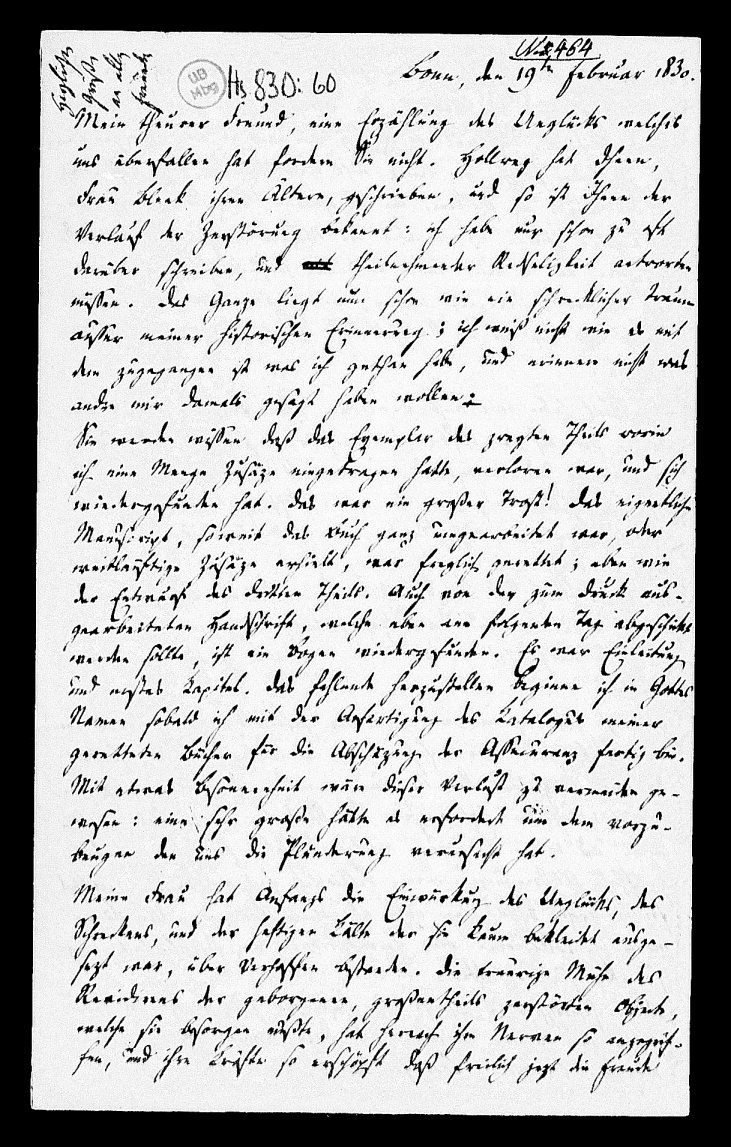 No 464
Herzliche
Grüße
an alle
Freunde
UB
Mbg
Hs 830: 60
Bonn, den 19te Februar 1830.
Mein theurer Freund, eine Erzählung des Unglücks welches
uns überfallen hat fordern Sie nicht. Hollweg hat Ihnen,
Frau Bleek ihren Ältern, geschrieben, und so ist Ihnen der
Verlauf der Zerstörung bekannt: ich habe nur schon zu oft
darüber schreiben, und theilnehmender Redseligkeit antworten
müssen. Das Ganze liegt nun schon wie ein schrecklicher Traum
ausser meiner historischen Erinnerung; ich weiß nicht wie es mit
dem zugegangen ist was ich gethan habe, und erinnere nicht was
andre mir damals gesagt haben wollen.
Sie werden wissen daß das Exemplar des zweyten Theils worin
ich eine Menge Zusäze eingetragen hatte, verloren war, und sich
wiedergefunden hat. Das war ein großer Trost! Das eigentliche
Manuscript, soweit das Buch ganz umgearbeitet war, oder
weitläuftige Zusäze erhielt, war freylich gerettet; eben wie
der Entwurf des dritten Theils. Auch von der zum Druck aus-
gearbeiteten Handschrift, welche eben am folgenden Tag abgeschickt
werden sollte, ist ein Bogen wiedergefunden. Es war Einleitung
und erstes Kapitel. Das fehlende herzustellen beginne ich in Gottes
Namen sobald ich mit der Anfertigung des Katalogus meiner
geretteten Bücher für die Abschäzung der Assecuranz fertig bin.
Mit etwas Besonnenheit wäre dieser Verlust zu vermeiden ge-
wesen: eine sehr große hätte es erfordert um dem vorzu-
beugen den uns die Plünderung verursacht hat.
Meine Frau hat Anfangs die Einwürkung des Unglücks, des
Schreckens, und der heftigen Kälte der sie kaum bekleidet ausge-
sezt war, über Verhoffen bestanden. Die traurige Mühe des
Revidirens der geborgenen, großentheils zerstörten Objecte,
welche sie besorgen mußte, hat hernach ihre Nerven so angegrif-
fen, und ihre Kräfte so erschöpft daß freilich jezt die Freude